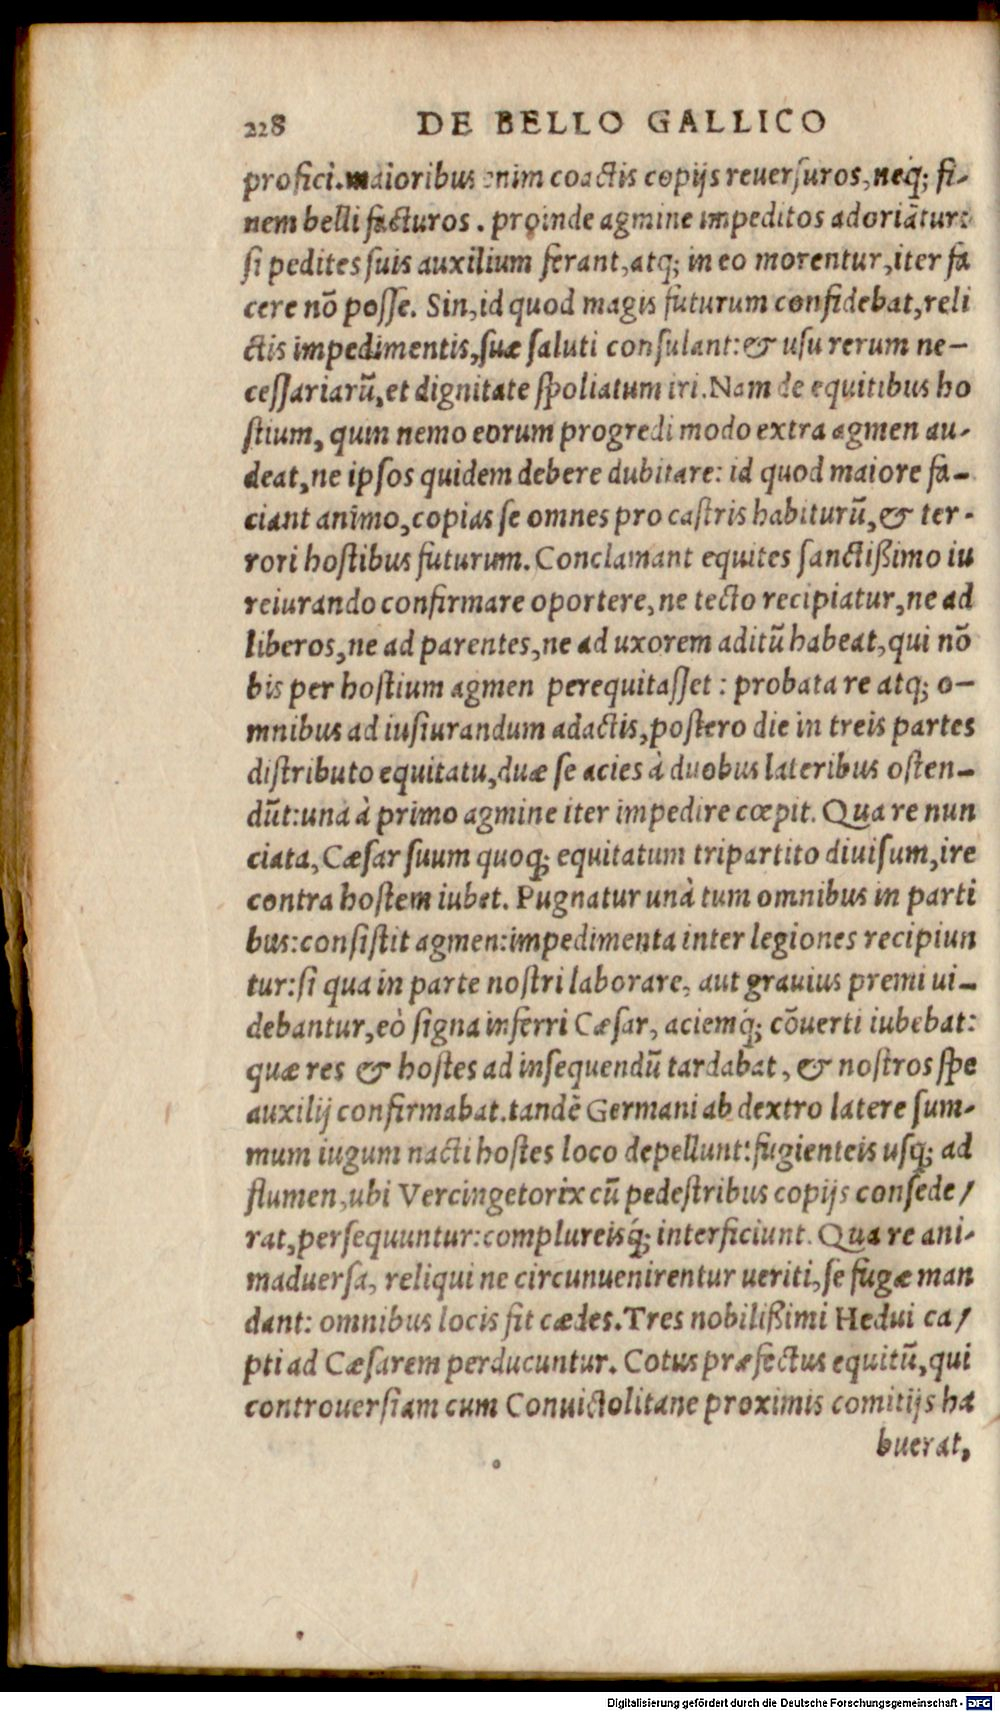 228 DE BELLO GALLICO
profici.maioribus enim coactis copijs reuerſuros,neq́; fi-
nem belli facturos. proinde agmine impeditos adoriãtur:
ſi pedites ſuis auxilium ferant,atq; in eo morentur,iter fa
cere nõ poſſe. Sin,id quod magis futurum confidebat,reli
ctis impedimentis,ſuæ ſaluti conſulant:& uſu rerum ne-
ceſſariarũ,et dignitate ſpoliatum iri.Nam de equitibus ho
ſtium, qum nemo eorum progredi modo extra agmen au-
deat,ne ipſos quidem debere dubitare: id quod maiore fa-
ciant animo,copias ſe omnes pro caſtris habiturũ,& ter-
rori hoſtibus futurum.Conclamant equites ſanctißimo iu
reiurando confirmare oportere,ne tecto recipiatur,ne ad
liberos,ne ad parentes,ne ad uxorem aditũ habeat,qui nõ
bis per hoſtium agmen perequitaſſet: probata re atq; o-
mnibus ad iuſiurandum adactis,poſtero die in treis partes
diſtributo equitatu,duæ ſe acies à duobus lateribus oſten-
dũt:una à primo agmine iter impedire cœpit. Qua re nun
ciata,Cæſar ſuum quoq; equitatum tripartito diuiſum,ire
contra hoſtem iubet. Pugnatur unà tum omnibus in parti
bus:conſiſtit agmen:impedimenta inter legiones recipiun
tur:ſi qua in parte noſtri laborare, aut grauius premi ui-
debantur,eò ſigna inferri Cæſar, aciemq́; cõuerti iubebat:
quæ res & hoſtes ad inſequendũ tardabat, & noſtros ſpe
auxilij confirmabat.tandẽ Germani ab dextro latere ſum-
mum iugum nacti hoſtes loco depellunt:fugienteis uſq; ad
flumen,ubi Vercingetorix cũ pedeſtribus copijs conſede/
rat,perſequuntur:complureisq́; interficiunt. Qua re ani-
maduerſa, reliqui ne circunuenirentur ueriti,ſe fugæ man
dant: omnibus locis fit cædes.Tres nobilißimi Hedui ca/
pti ad Cæſarem perducuntur. Cotus præfectus equitũ,qui
controuerſiam cum Conuictolitane proximis comitijs ha
buerat,
Digitalisierung gefördert durch die Deutsche Forschungsgemeinschaft - DFG